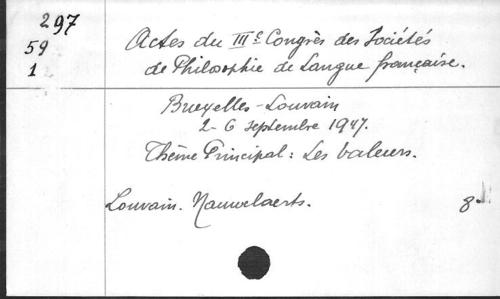 297
59
1
Actes du IIIe Congrès des Sociétés
de Philosophie de Langue française.
Bruxelles-Louvain
2-6 septembre 1947.
Thème Principal: Les Valeurs.
Louvain. Nauwelaerts. 8º